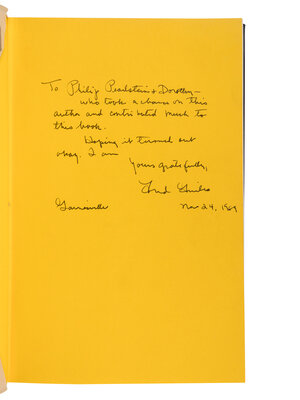 To Philip Pearlstein & Dorothy—
who took a chance on this
author and contributed much to
this book.
Hoping it turned out
okay, I am
Yours gratefully,
Gainesville Nov 24, 1969